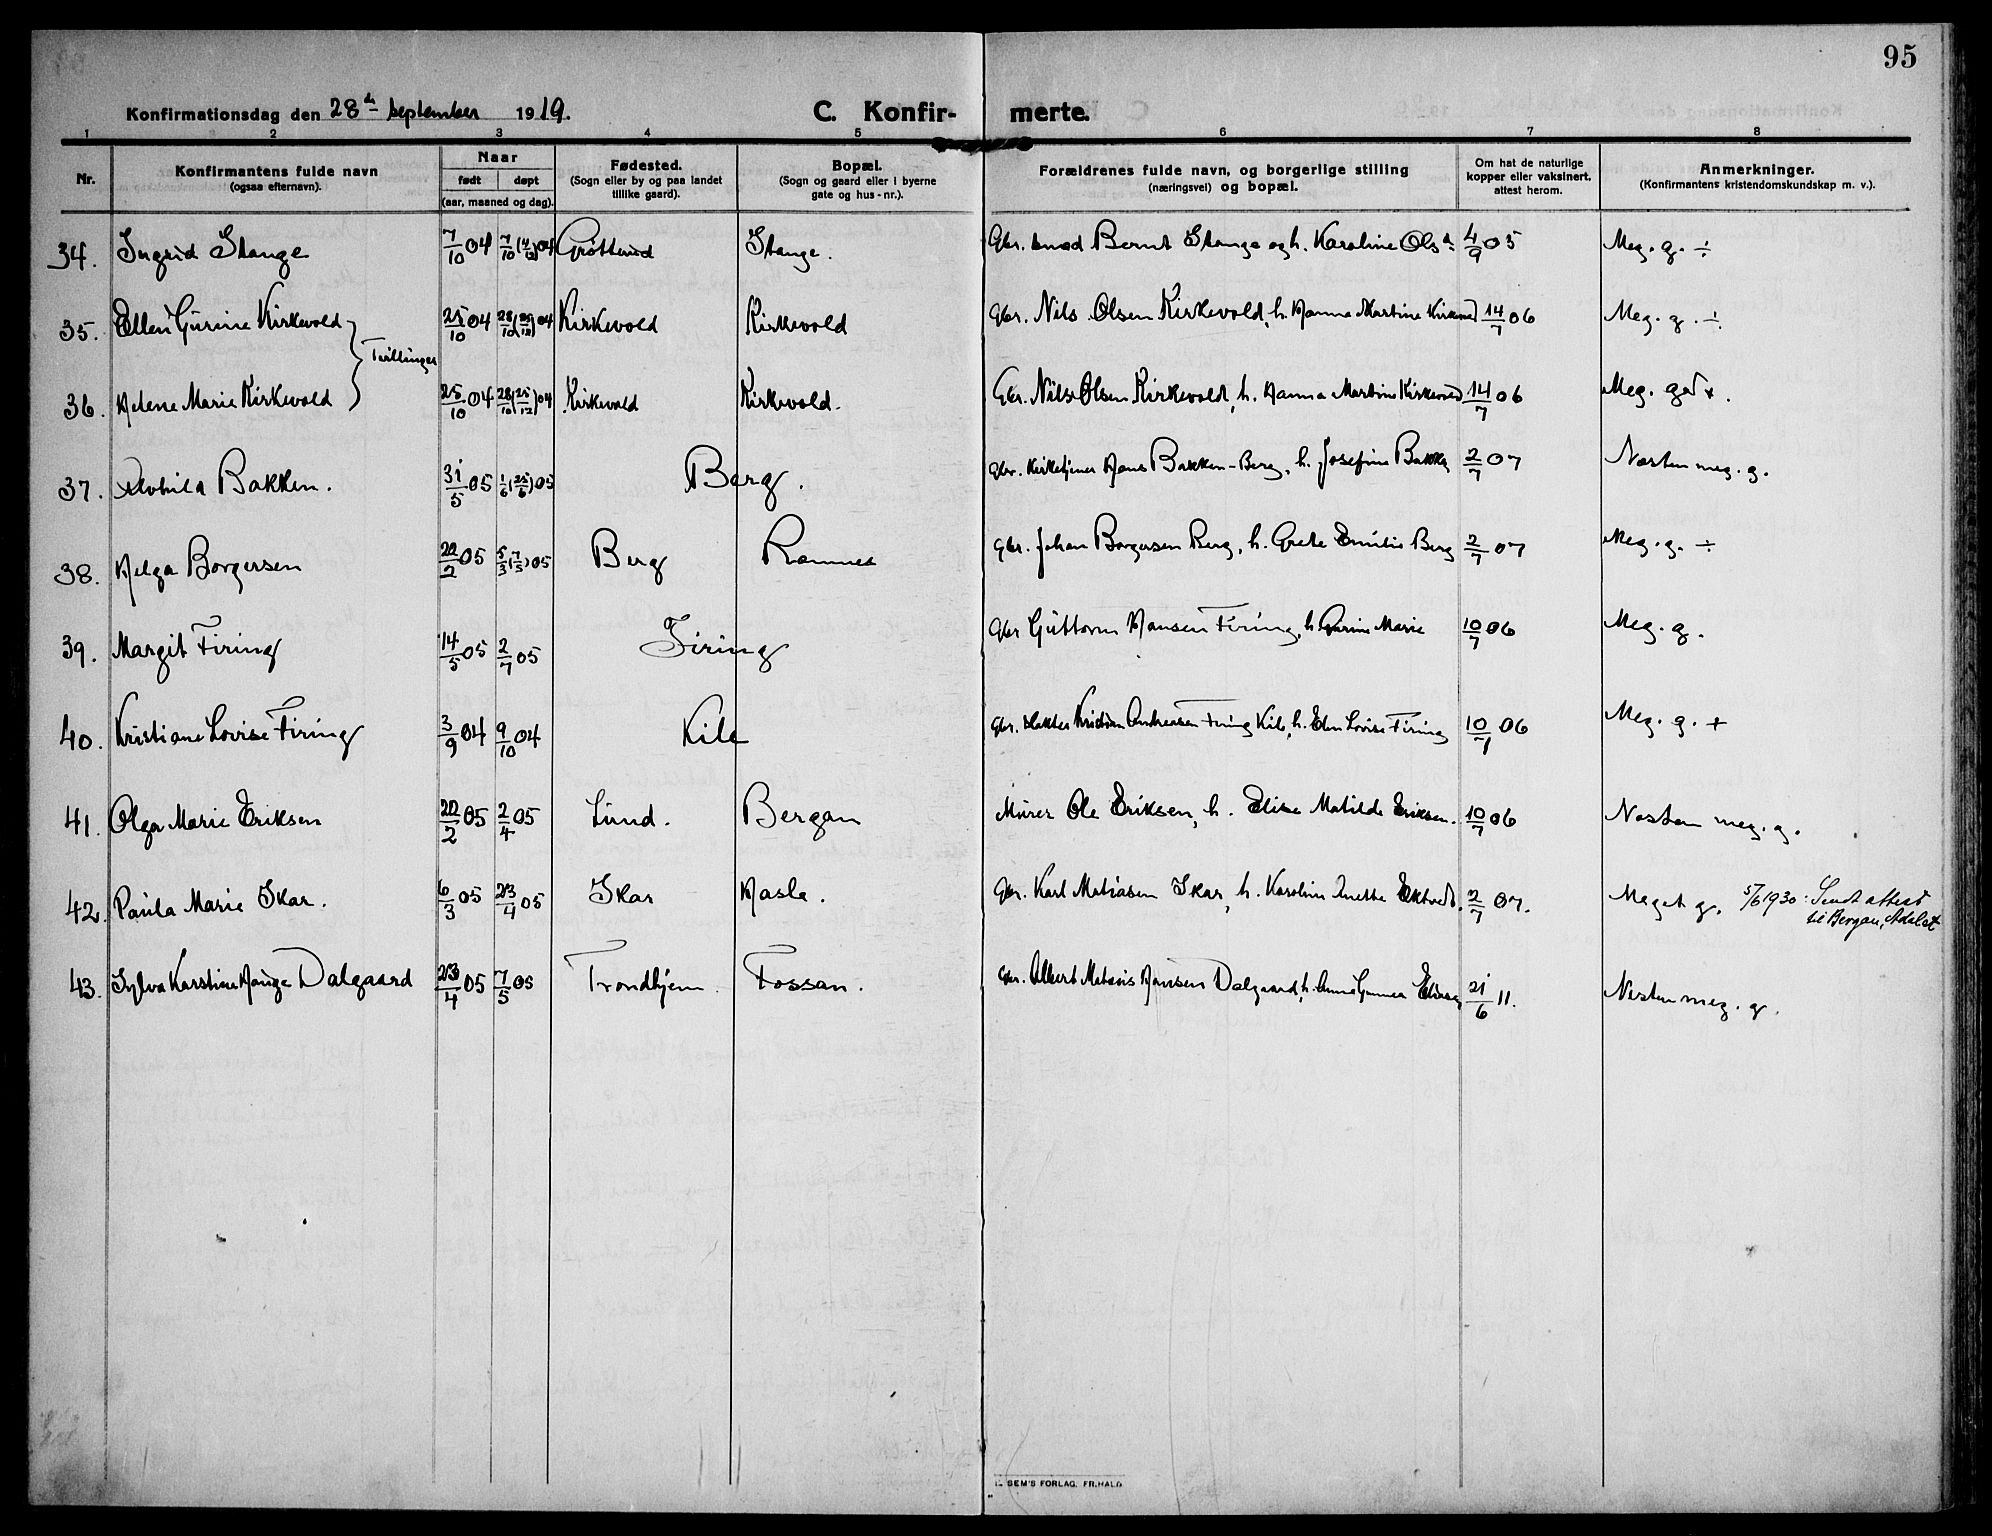 95
Konfirmationsdag den 28de september 1919. C. Konfir- merte.
1 2 3 4 5 6 7 8
Nr. Konfirmantens fulde navn (ogsaa efternavn). Naar født døpt (aar, maaned og dag). Fødested. (Sogn eller by og paa landet tillike gaard). Bopæl. (Sogn og gaard eller i byerne gate og hus-nr.). Forældrenes fulde navn, og borgerlige stilling (næringsvei) og bopæl. Om hat de naturlige kopper eller vaksinert, attest herom. Anmerkninger. (Konfirmantens kristendomskundskap m. v.).
34. Ingrid Stange 7/10 04 7/10 (4/12) 04 Grøtterud Stange. Gbr. Bernt Stange og h. Karoline Olsdr 4/9 05 Meg. g. ÷
35. Ellen Gurine Kirkevold 25/10 04 28/10 (25/12) 04 Kirkevold Kirkevold Gbr. Nils Olsen Kirkevold, h. Hanna Martine Kirkevold 14/7 06 Meg. g. ÷
Tvillinger
36. Helene Marie Kirkevold 25/10 04 28/10 (25/12) 04 Kirkevold Kirkevold. Gbr. Nils Olsen Kirkevold, h. Hanna Martine Kirkevold 14/7 06 Meg. god +.
37. Alvhild Bakken. 31/5 05 1/6 (25/6) 05 Berg. Gbr. Kirketjener Hans Bakken-Berg, h. Josefine Bakken 2/7 07 Næsten meg. g.
38. Helga Borgersen 22/2 05 5/3 (7/5) 05 Berg Ramnes Gbr. Johan Borgersen Berg, h. Grete Emilie Berg 2/7 07 Meg. g. ÷
39. Margit Firing 14/5 05 2/7 05 Firing Gbr Guttorm Hansen Firing, h. Gurine Marie 10/7 06 Meg. g.
40. Kristiane Lovise Firing 3/9 04 9/10 04 Kile Gbr. Kristian Andreasen Firing Kile, h. Elen Lovise Firing 10/7 06 Meg. g. +
41. Olga Marie Eriksen 22/2 05 2/4 05 Lund. Bergan Murer Ole Eriksen, h. Elise Matilde Eriksen. 10/7 06 Næsten meg. g.
42. Paula Marie Skar. 6/3 05 23/4 05 Skar Hasle. Gbr. Karl Matiasen Skar, h. Karoline Anette Ektvedt. 2/7 07. Meget g. 5/6 1930: Sendt attest
til Bergan, Ådalst
43. Sylva Karstine Hauge Dalgaard 23/4 05 7/5 05 Trondhjem. Fossan. Gbr. Albert Matæus Hansen Dalgaard, h. Anna Gunnea 21/6 11. Næsten meg. g.
SEM'S FORLAG, FR.HALD